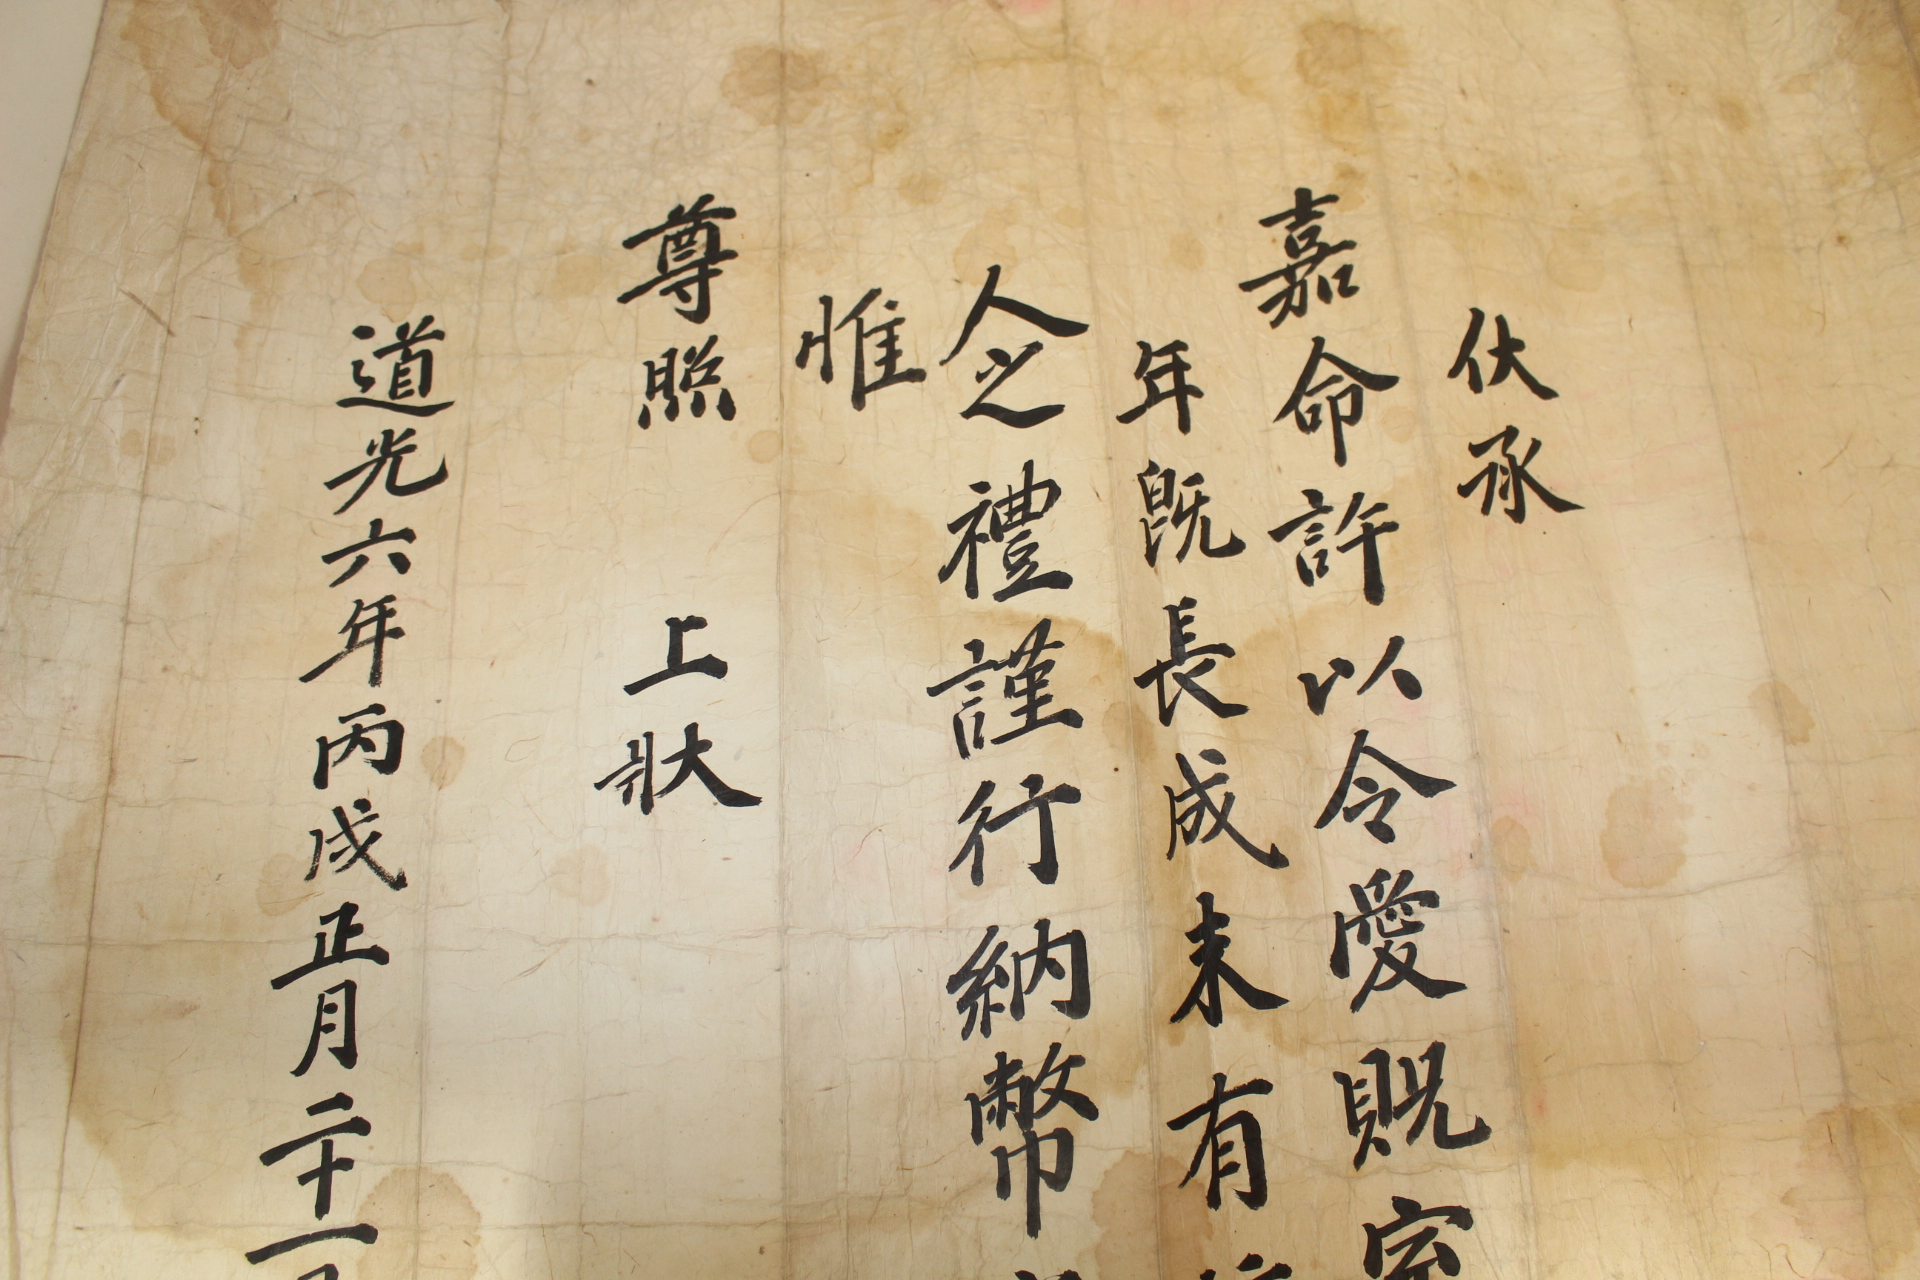 伏承
嘉命許以令愛貺室
年既長成未有
人之禮謹行納幣
惟
尊照 上狀
道光六年丙戌正月二十一